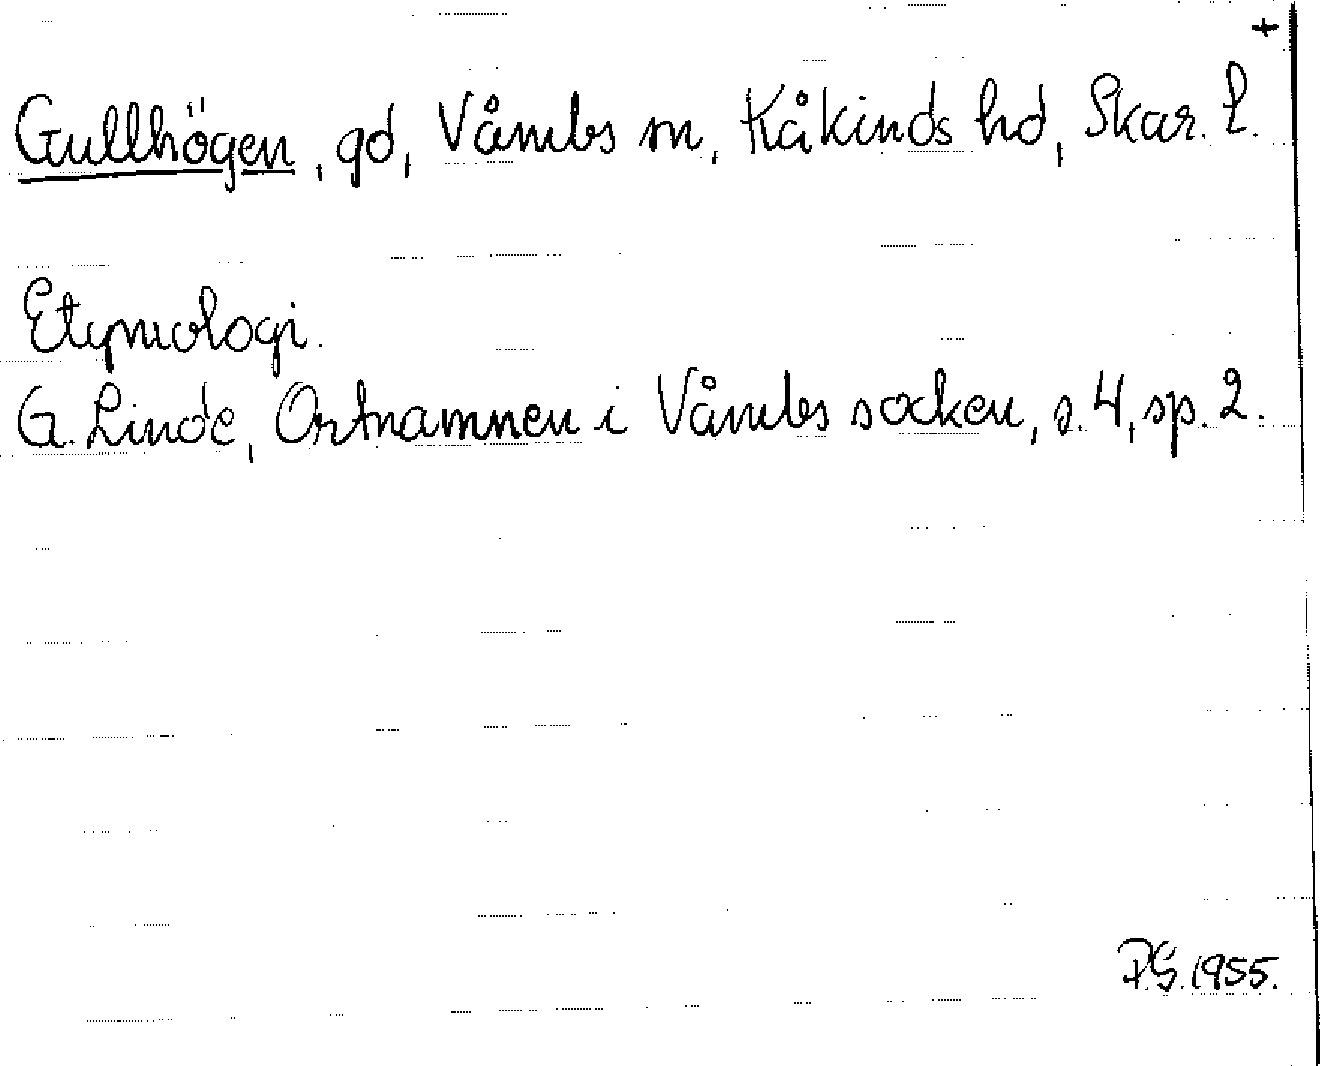 +
Gullhögen, gd, Våmbs sn, Kåkinds hd, Skar. l.
Etymologi.
G. Linde, Ortnamnen i Våmbs socken, s. 4, sp. 2.
P.G. 1955.